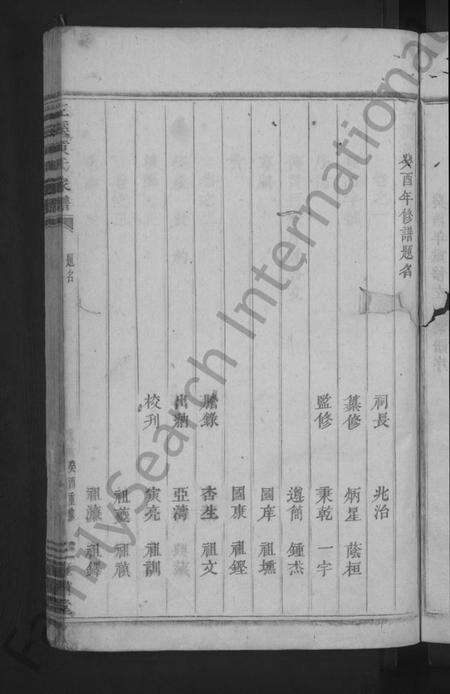 癸酉年修譜題名
祠長 兆治
纂修 炳星 蔭桓
監修 秉乾 一宇
遵筒 鍾杰
國庠 祖壎
國康 祖鏗
謄錄 杏生 祖文
出納 亞濤
校刊 寅亮 祖訓
祖謨 祖禎
祖濂 祖鍔
題名
癸酉重修
FamilySearch International